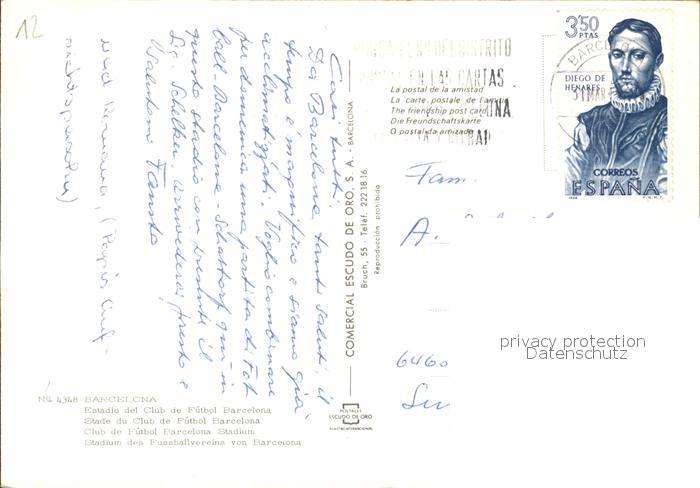 12
Cari tutti.
Da Barcelona tanti saluti, il
tempo è magnifico e siamo già
acclimatizzati. Voglio combinare
per domenica una partita di Foot-
ball. Barcelona - Schattdorf qui in
questo stadio con presente il
Sig. Schelker, arrivederci presto e
Salutoni Fausto
und
nichts
Nº 4348 BARCELONA
Estadio del Club de Fútbol Barcelona
Stade du Club de Fútbol Barcelona
Club de Fútbol Barcelona Stadium
Stadium des Fussballvereins von Barcelona
COMERCIAL ESCUDO DE ORO, S. A. - BARCELONA
Bruch, 55 - Teléf. 222 18 16
Reproducción prohibida
POSTALES
ESCUDO DE ORO
DISTRITO
EN LAS CARTAS
La postal de la amistad
La carte postale de l'amitié
The friendship post card
Die Freundschaftskarte
O postal da amizade
3'50
PTAS
BARCELONA
DIEGO DE
HENARES
MAR
CORREOS
ESPAÑA
Fam.
A.
6460
privacy protection
Datenschutz